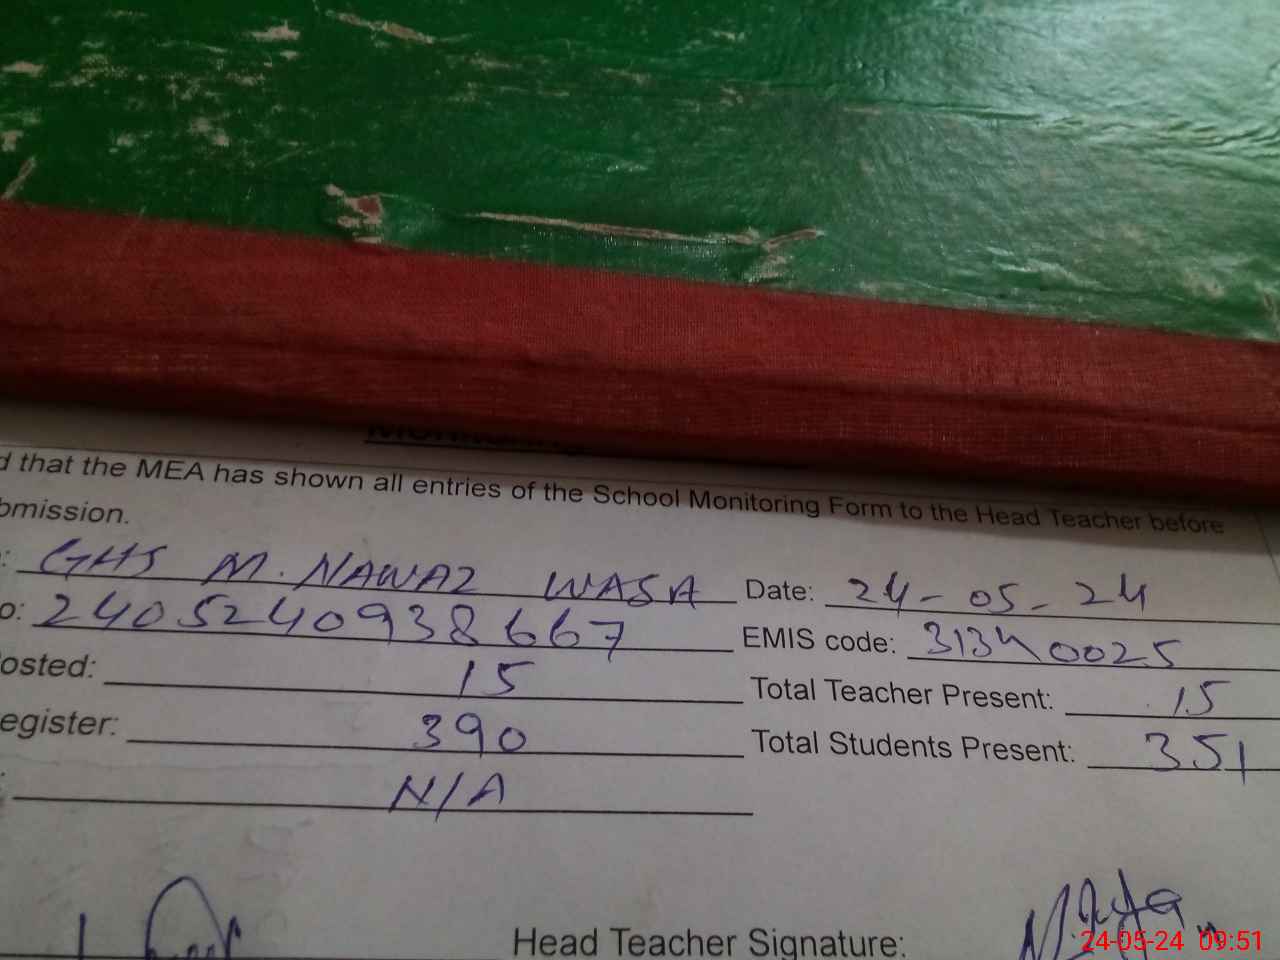 d that the MEA has shown all entries of the School Monitoring Form to the Head Teacher before
bmission.
: GHS M. NAWAZ WASA Date: 24-05-24
o: 2405240938667 EMIS code: 31340025
osted: 15 Total Teacher Present: 15
egister: 390 Total Students Present: 351
: N/A
Head Teacher Signature:
24-05-24 09:51